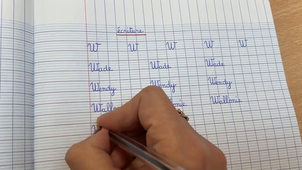 écriture
W W W W W
Wade Wade Wade
Wendy Wendy Wendy
Wallonie Wallonie